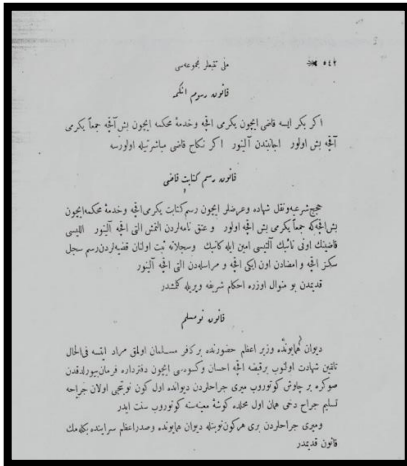 ٥٤٢ ملی تتبعلر مجموعه‌سی
قانون رسوم انکحه
اکر بکر ایسه قاضی ایچون یکرمی اقچه وخدمهٔ محکمه ایچون بش آقچه جمعاً یکرمی
آقچه بش اولور اجانبدن آلینور اکر نکاح قاضی مباشرتیله اولورسه
قانون رسم کتابت قاضی
حجج شرعیه ونقل شهاده وعرضلر ایچون رسم کتابت یکرمی اقچه وخدمهٔ محکمه ایچون
بش اقچه که جمعاً یکرمی بش اقچه اولور وعتق نامه‌لردن التمش التی اقچه آلینور اللیسی
قاضینك اونی نائبك آلتیسی امین ایله کاتبك وسجلاته ثبت اولنان قضیه‌لردن رسم سجل
سکز اقچه وامضادن اون ایکی اقچه ومراسله‌دن التی اقچه آلینور
قدیمدن بو منوال اوزره احکام شریفه ویریله کلمشدر
قانون نومسلم
دیوان همایونده وزیر اعظم حضورنده بر کافر مسلمان اولمق مراد ایتسه فی‌الحال
تلقین شهادت اولنوب بر قبضه اقچه احسان وکسوه‌سی ایچون دفترداره فرمان بیورلدقدن
صوکره بر چاوش کوتوروب میری جراحلردن دیوانده اول کون نوبتجی اولان جراحه
تسلیم جراح دخی همان اول محلده کوشهٔ معینه‌سنه کوتوروب سنت ایدر
ومیری جراحلردن بری هر کون نوبتله دیوان همایونده وصدراعظم سراینده بکله‌مك
قانون قدیمدر